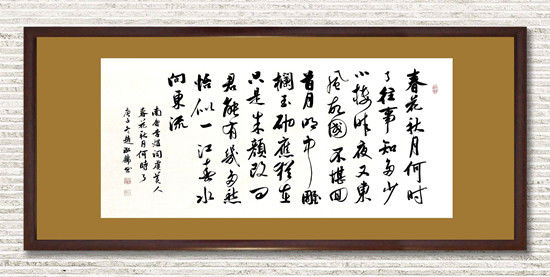 春花秋月何时
了往事知多少
小楼昨夜又东
风故國不堪回
首月明中雕
欄玉砌應猶在
只是朱顔改问
君能有幾多愁
恰似一江春水
向東流
南唐李煜词虞美人
春花秋月何時了
庚子